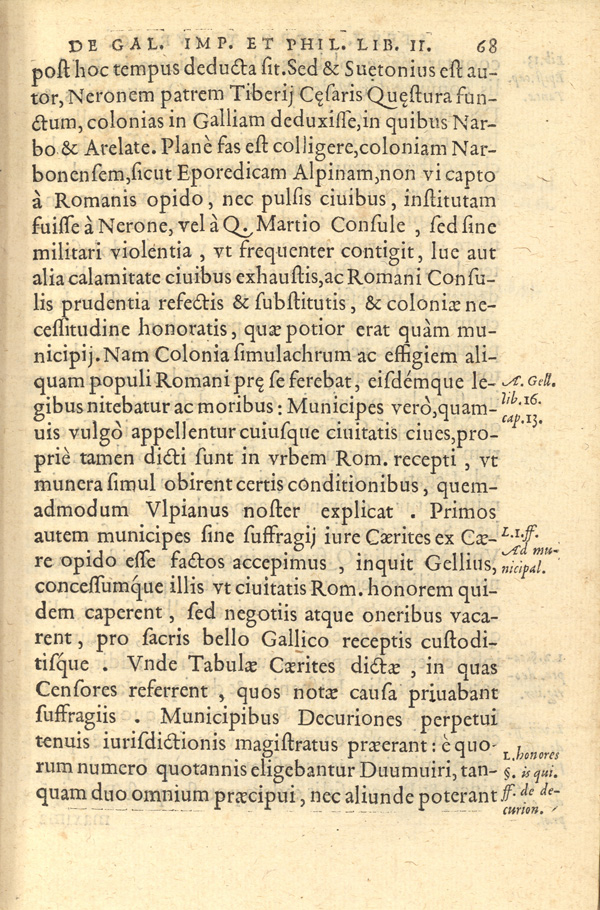 DE GAL. IMP. ET PHIL. LIB. II. 68
poſt hoc tempus deducta ſit. Sed & Suętonius eſt au-
tor, Neronem patrem Tiberij Cęſaris Quęſtura fun-
ctum, colonias in Galliam deduxiſſe, in quibus Nar-
bo & Arelate. Planè fas eſt colligere, coloniam Nar-
bonenſem, ſicut Eporedicam Alpinam, non vi capto
à Romanis opido, nec pulſis ciuibus, inſtitutam
fuiſſe à Nerone, vel à Q. Martio Conſule, ſed ſine
militari violentia, vt frequenter contigit, lue aut
alia calamitate ciuibus exhauſtis, ac Romani Conſu-
lis prudentia refectis & ſubſtitutis, & coloniæ ne-
ceſſitudine honoratis, quæ potior erat quàm mu-
nicipij. Nam Colonia ſimulachrum ac effigiem ali-
quam populi Romani prę ſe ferebat, eiſdémque le-
gibus nitebatur ac moribus: Municipes verò, quam-
uis vulgò appellentur cuiuſque ciuitatis ciues, pro-
priè tamen dicti ſunt in vrbem Rom. recepti, vt
munera ſimul obirent certis conditionibus, quem-
admodum Vlpianus noſter explicat. Primos
autem municipes ſine ſuffragij iure Cærites ex Cæ-
re opido eſſe factos accepimus, inquit Gellius,
conceſſumq́ue illis vt ciuitatis Rom. honorem qui-
dem caperent, ſed negotiis atque oneribus vaca-
rent, pro ſacris bello Gallico receptis cuſtodi-
tiſq́ue. Vnde Tabulæ Cærites dictæ, in quas
Cenſores referrent, quos notæ cauſa priuabant
ſuffragiis. Municipibus Decuriones perpetui
tenuis iuriſdictionis magiſtratus præerant: è quo-
rum numero quotannis eligebantur Duumuiri, tan-
quam duo omnium præcipui, nec aliunde poterant
A. Gell.
lib. 16.
cap. 13.
L. 1. ff.
Ad mu-
nicipal.
L. honores
§. is qui.
ff. de de-
curion.